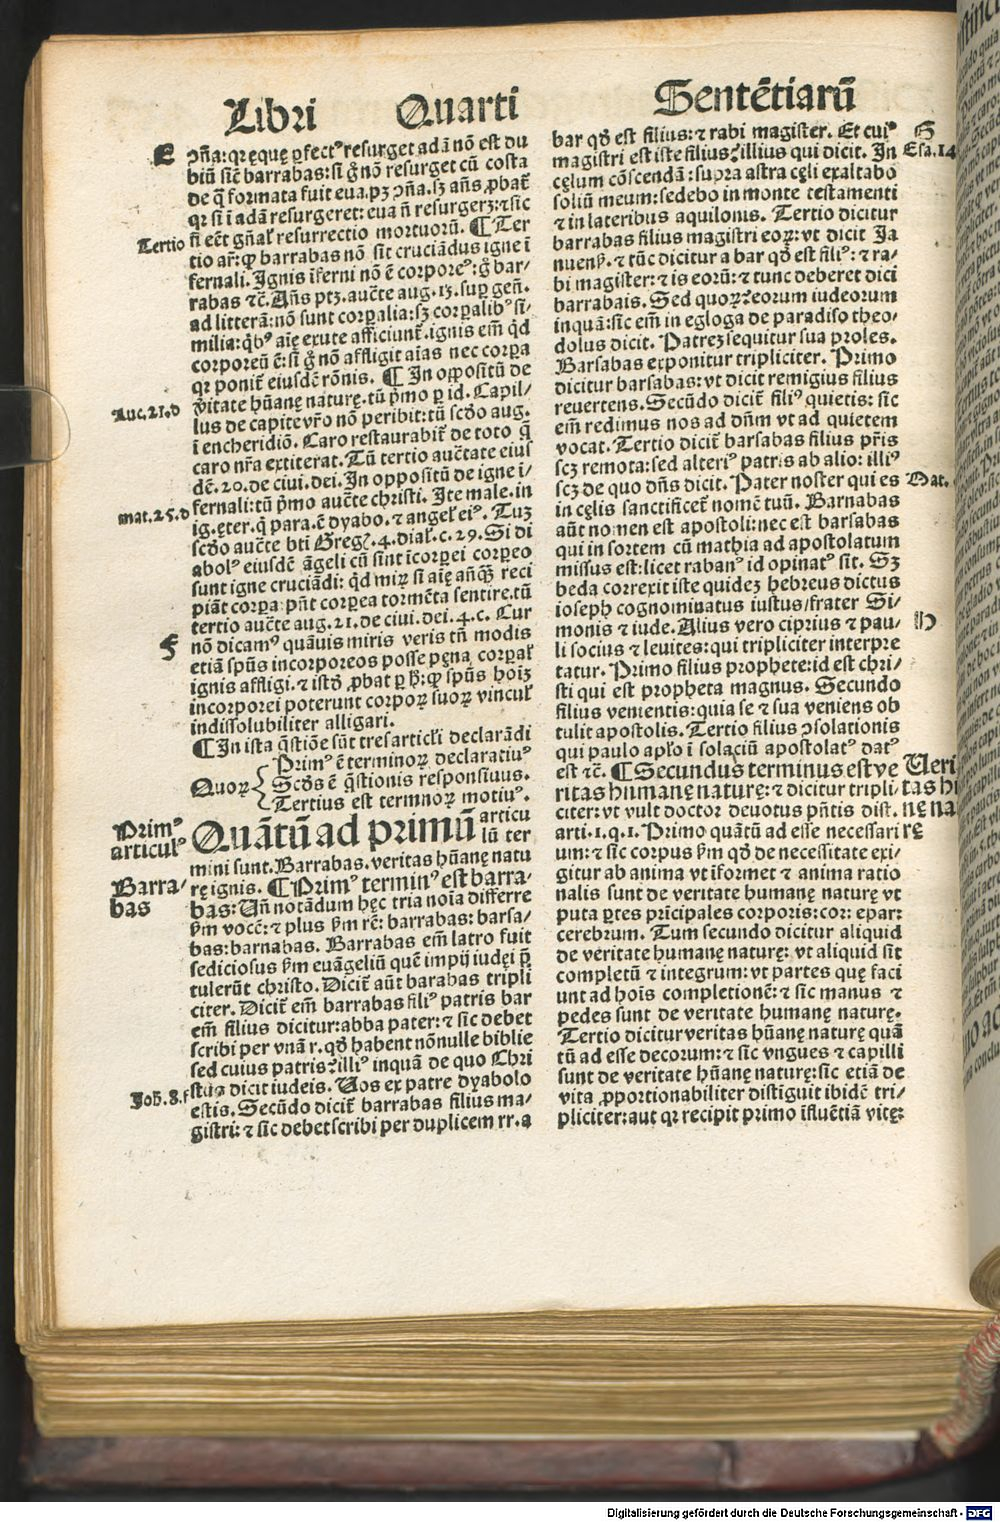 Libri Quarti Sentētiarū
E
ↄña: qr ęque ꝑfectꝰ resurget adā nō est du
biū siē barrabas: si g̊ nō resurget cū costa
de q̄ formata fuit eua. pꝫ ↄña. sꝫ añs ꝓbat̄
qr si ī adā resurgeret: eua n̄ resurgerꝫ: ⁊ sic
n̄ eēt gn̄aƚ resurrectio mortuorū. ¶ Ter
Tertio
tio ar̄: ꝙ barrabas nō sit cruciādus igne ī
fernali. Ignis īferni nō ē corporeꝰ: g̊ bar-
rabas ⁊c̄. Añs ptꝫ. auc̄te aug. 13. suꝑ gen̄.
ad litterā: nō sunt corꝑalia: sꝫ corꝑalibꝰ si-
milia: q̇bꝰ aīę exute afficiunt̄. ignis em̄ q̇d
corporeū ē: si g̊ nō affligit aīas nec corꝑa
qr ponit̄ eiusdē rōnis. ¶ In oppositū de
v̓itate hūanę naturę. tū p̓mo ꝑ id. Capil-
Luc. 21. d
lus de capite vr̄o nō peribit: tū scd̓o aug.
ī encheridiō. Caro restaurabit̄ de toto q̄
caro nr̄a extiterat. Tū tertio auc̄tate eius
dē. 20. de ciui. dei. In oppositū de igne ī-
fernali: tū p̓mo auc̄te christi. Ite male. in
mat. 25. d
ig. ęter. q̇ para. ē dyabo. ⁊ angeƚ eiꝰ. Tuꝫ
scd̓o auc̄te bti Greg. 4. diaƚ. c. 29. Si di
abolꝰ eiusdē āgeli cū sint īcorꝑei corꝑeo
sunt igne cruciādi: q̇d miꝝ si aīę añq̄ꝫ reci
piāt corꝑa: pn̄t corꝑea tormēta sentire. tū
tertio auc̄te aug. 21. de ciui. dei. 4. c. Cur
F
nō dicamꝰ quāuis miris veris tn̄ modis
etiā spūs incorporeos posse pęna corꝑaƚ
ignis affligi. ⁊ istd̓ ꝓbat ꝑ h̓: ꝙ spūs hoīꝫ
incorporei poterunt corpoꝝ suoꝝ vincuƚ
indissolubiliter alligari.
¶ In ista q̄stiōe sūt tres articƚi declarādi
Quoꝝ
Primꝰ ē terminoꝝ declaratiuꝰ
Scd̓s ē q̄stionis responsiuus.
Tertius est termnoꝝ motiuꝰ.
Primꝰ
articulꝰ
Quātū ad primū articu
lū ter
mini sunt. Barrabas. veritas hūanę natu
rę ignis. ¶ Primꝰ terminꝰ est barra-
Barra-
bas
bas: Uñ notādum hęc tria noīa differre
ẜm vocē: ⁊ plus ẜm rē: barrabas: barsa-
bas: barnabas. Barrabas em̄ latro fuit
sediciosus ẜm euāgeliū quē impij iudęi p̄
tulerūt christo. Dicit̄ aūt barabas tripli
citer. Dicit̄ em̄ barrabas filiꝰ patris bar
em̄ filius dicitur: abba pater: ⁊ sic debet
scribi per vnā r. qd̓ habent nōnulle biblie
sed cuius patris? illiꝰ inquā de quo Chri
stus dicit iudeis. Uos ex patre dyabolo
Joh̄. 8. f
estis. Secūdo dicit̄ barrabas filius ma-
gistri: ⁊ sic debet scribi per duplicem rr. a
bar qd̓ est filius: ⁊ rabi magister. Et cuiꝰ
G
magistri est iste filius? illius qui dicit. In
Esa. 14
cęlum cōscendā: supra astra cęli exaltabo
soliū meum: sedebo in monte testamenti
⁊ in lateribus aquilonis. Tertio dicitur
barrabas filius magistri eoꝝ: vt dicit Ja
nuen̄. ⁊ tūc dicitur a bar qd̓ est filiꝰ: ⁊ ra-
bi magister: ⁊ is eorū: ⁊ tunc deberet dici
barrabais. Sed quoꝝ? eorum iudeorum
inquā: sic em̄ in egloga de paradiso theo-
dolus dicit. Patreꝫ sequitur sua proles.
Barsabas exponitur tripliciter. Primo
dicitur barsabas: vt dicit remigius filius
reuertens. Secūdo dicit̄ filiꝰ quietis: sic
em̄ redimus nos ad dn̄m vt ad quietem
vocat. Tertio dicit̄ barsabas filius pr̄is
scꝫ remota: sed alteriꝰ patris ab alio: illiꝰ
scꝫ de quo dn̄s dicit. Pater noster qui es
Mat.
in cęlis sanctificet̄ nomē tuū. Barnabas
aūt nomen est apostoli: nec est barsabas
qui in sortem cū mathia ad apostolatum
missus est: licet rabanꝰ id opinatꝰ sit. Sꝫ
beda correxit iste quideꝫ hebreus dictus
ioseph cognominatus iustus/ frater Si-
monis ⁊ iude. Alius vero ciprius ⁊ pau-
H
li socius ⁊ leuites: qui tripliciter interpre
tatur. Primo filius prophete: id est chri-
sti qui est propheta magnus. Secundo
filius venientis: quia se ⁊ sua veniens ob
tulit apostolis. Tertio filius ↄsolationis
qui paulo apƚo ī solaciū apostolatꝰ datꝰ
est ⁊c̄. ¶ Secundus terminus est ve
Ueri
ritas humanę naturę: ⁊ dicitur tripli
tas hu
citer: vt vult doctor deuotus pn̄tis dist.
nę na
arti. 1. q. 1. Primo quātū ad esse necessari
rę
um: ⁊ sic corpus ẜm qd̓ de necessitate exi-
gitur ab anima vt īformet ⁊ anima ratio
nalis sunt de veritate humanę naturę vt
puta ꝑtes prīcipales corporis: cor: epar:
cerebrum. Tum secundo dicitur aliquid
de veritate humanę naturę: vt aliquid sit
completū ⁊ integrum: vt partes quę faci
unt ad hoīs completionē: ⁊ sic manus ⁊
pedes sunt de veritate humanę naturę.
Tertio dicitur veritas hūanę naturę quā
tū ad esse decorum: ⁊ sic vngues ⁊ capilli
sunt de veritate hūanę naturę: sic etiā de
vita ꝓportionabiliter distiguit ibidē tri-
pliciter: aut qr recipit primo īfluētiā vitę:
Digitalisierung gefördert durch die Deutsche Forschungsgemeinschaft - DFG